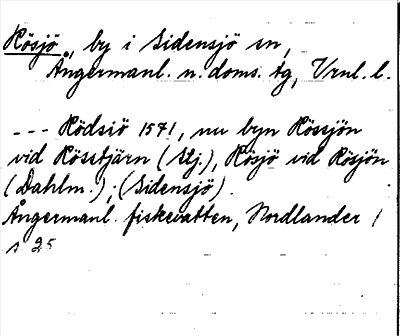 Rösjö, by i Sidensjö sn,
Ångermanl. n. doms. tg, Vrnl. l.
--- Rödsiö 1571, nu byn Rössjön
vid Rösstjärn (Stj.), Rösjö vid Rösjön
(Dahlm.); (Sidensjö).
Ångermanl. fiskevatten, Nordlander 1
s 25